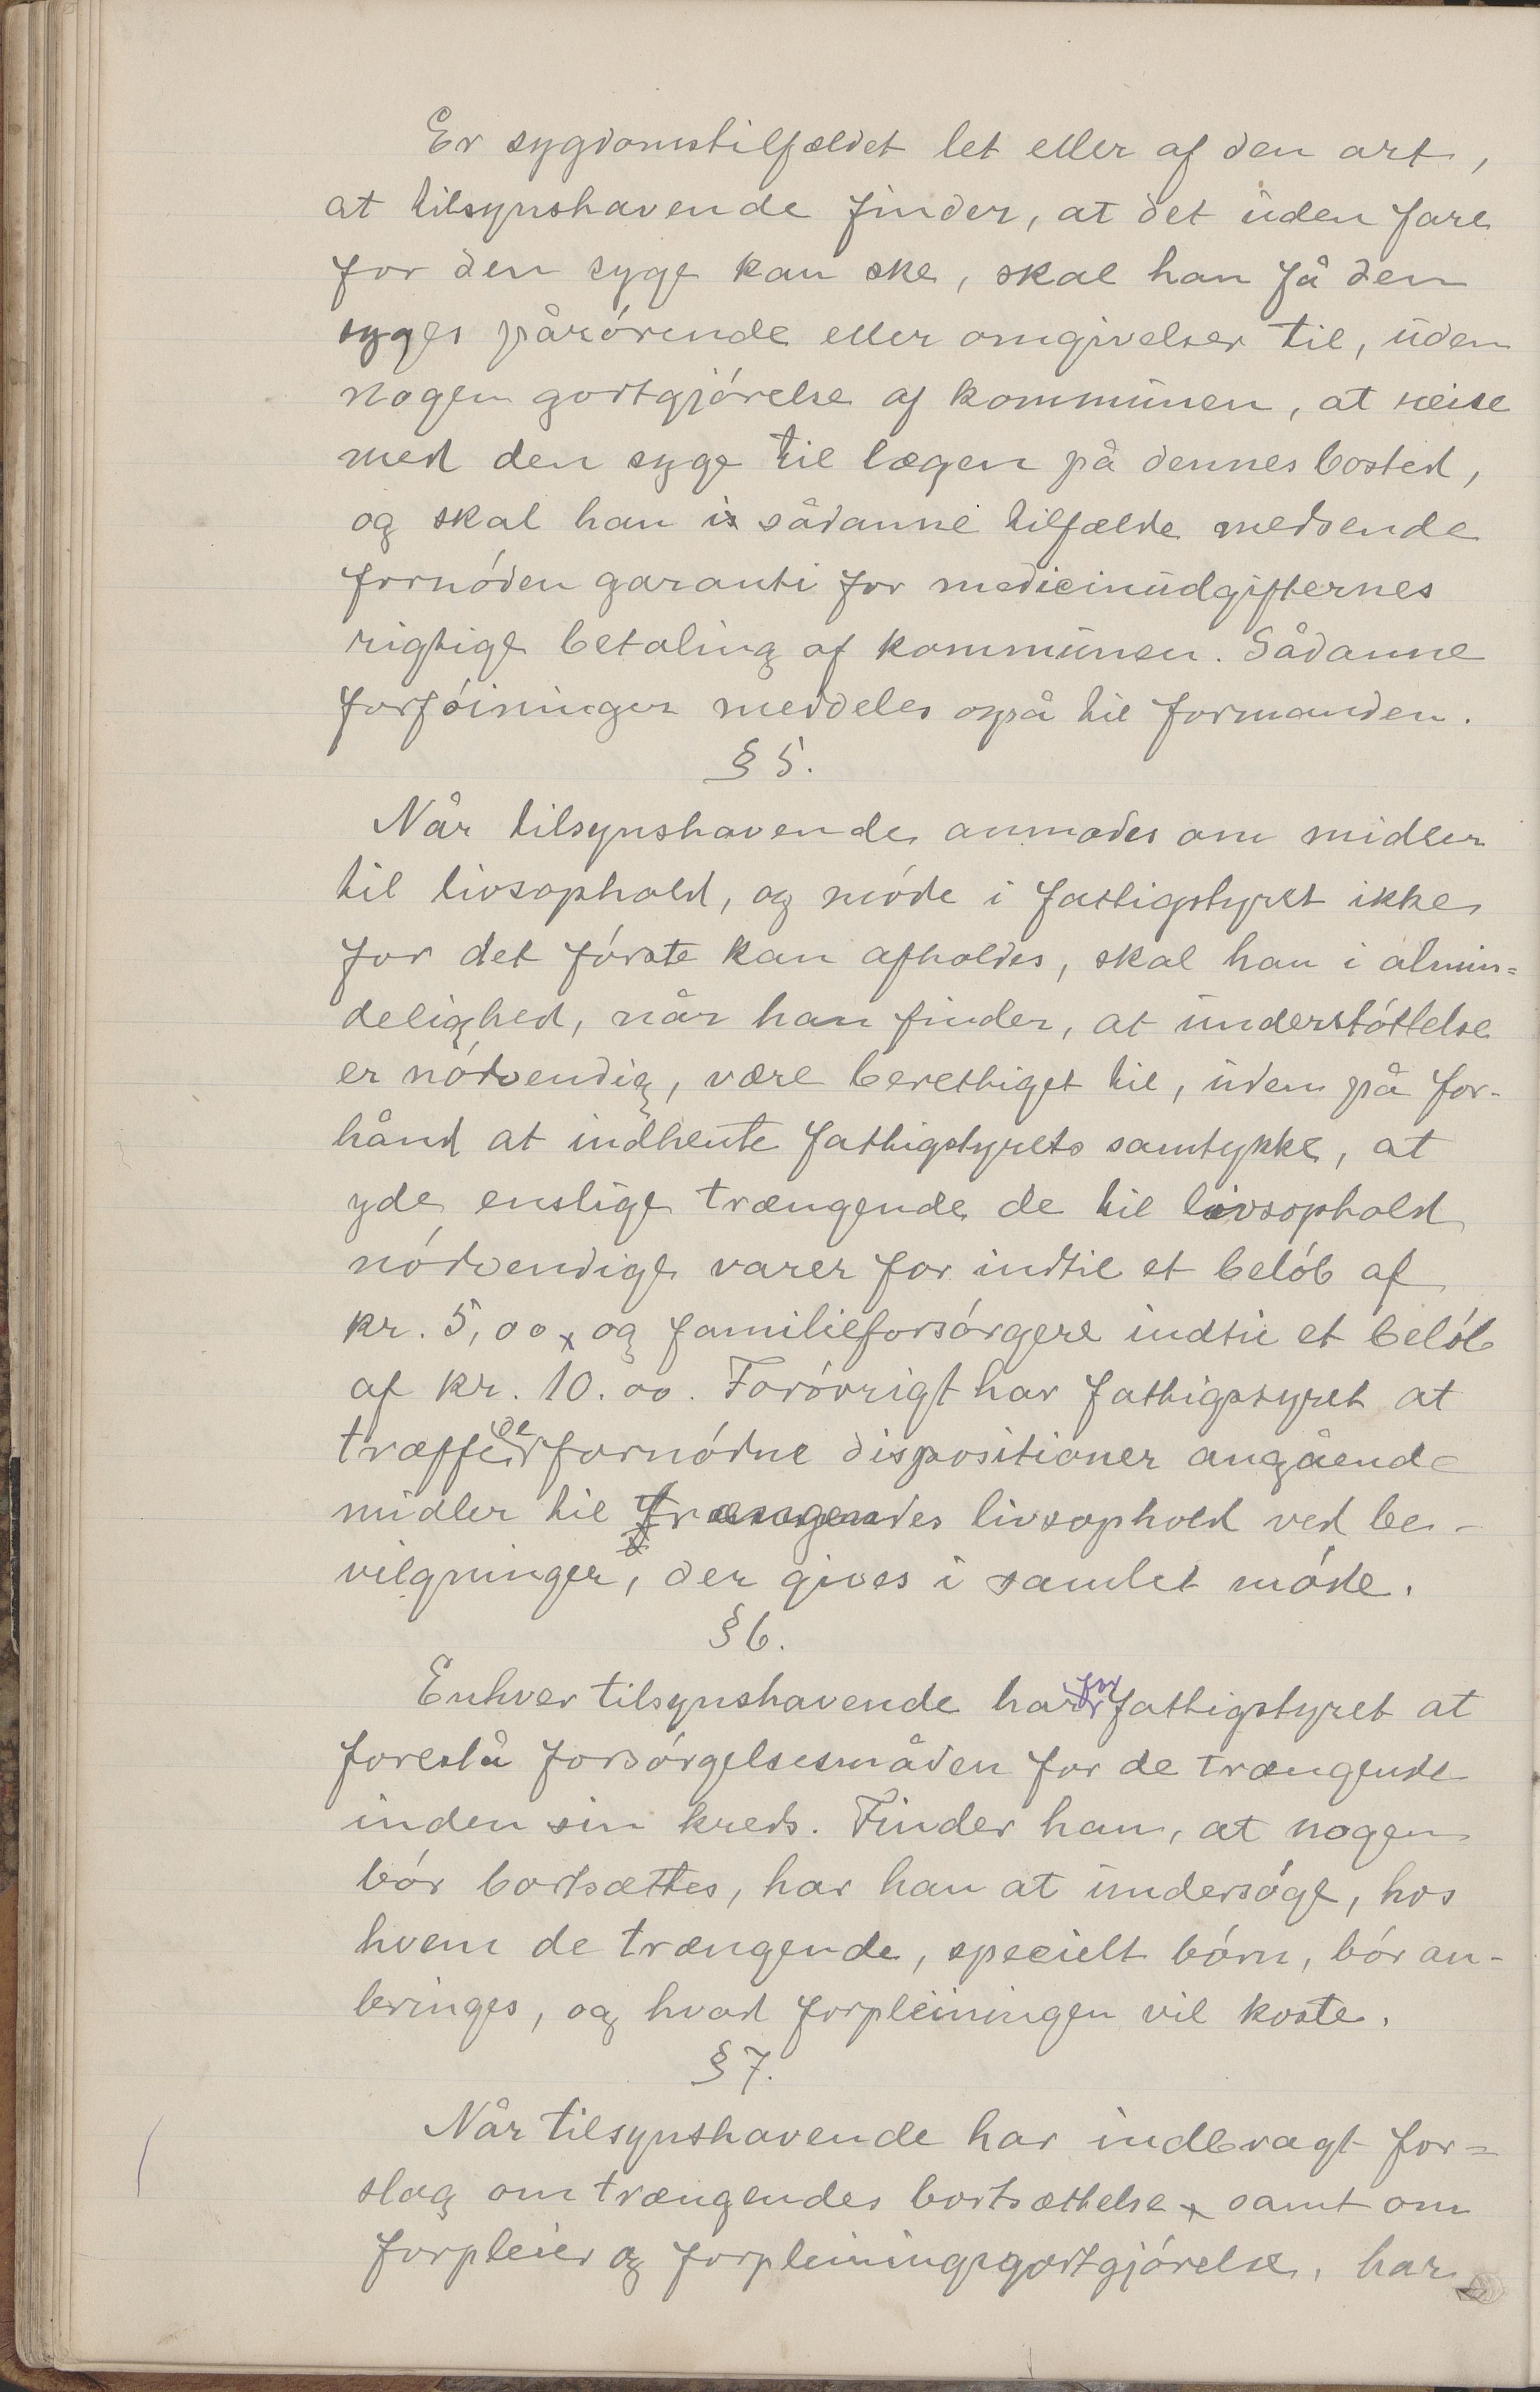 Er sygdomstilfældet let eller af den art,
at tilsynshavende finder, at det uden fare
for den syge kan ske, skal han få den
syges pårørende eller omgivelser til, uden
nogen godtgjørelse af kommunen, at reise
med den syge til lægen på dennes bosted,
og skal han i sådanne tilfælde medsende
fornøden garanti for medicinudgifternes
rigtige betaling af kommunen. Sådanne
forføininger meddeles også til formanden.
§ 5.
Når tilsynshavende anmodes om midler
til livsophold, og møde i fattigstyret ikke
for det første kan afholdes, skal han i almin=
delighed, når han finder, at understøttelse
er nødvendig, være berettiget til, uden på for-
hånd at indhente fattigstyrets samtykke, at
yde enslige trængende de til livsophold
nødvendige varer for indtil et beløb af
kr. 5,00 og familieforsørgere indtil et beløb
af kr. 10.00. Forøvrigt har fattigstyret at
træffe de fornødne dispositioner angående
midler til trængendes livsophold ved be-
vilgninger, der gives i samlet møde.
§ 6.
Enhver tilsynshavende har for fattigstyret at
foreslå forsørgelsesmåden for de trængende
inden sin kreds. Finder han, at nogen
bør bortsættes, har han at undersøge, hos
hvem de trængende, specielt børn, bør an-
bringes, og hvad forpleiningen vil koste.
§ 7.
Når tilsynshavende har indbragt for=
slag om trængendes bortsættelse samt om
forpleier og forpleiningsgodtgjørelse, har